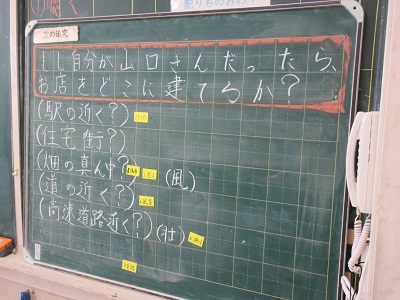 次の追究
もし自分が山口さんだったら、
お店をどこに建てるか？
(駅の近く?)
(住宅街?)
(畑の真ん中?) (風)
(道の近く?)
(高速道路近く?) (社)